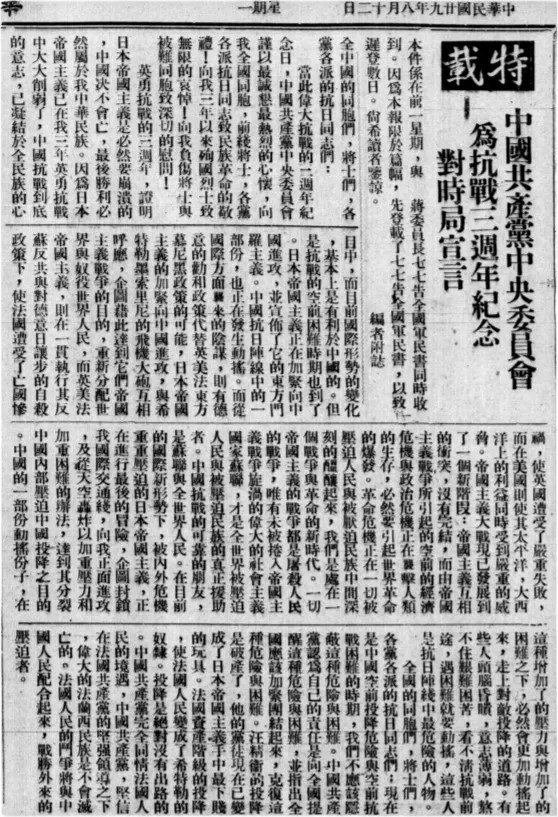 中華民國廿九年八月十二日
星期一
特載
中國共產黨中央委員會
為抗戰三週年紀念
對時局宣言
本件係在前一星期,與 蔣委員長七七告全國軍民書同時收
到。因為本報限於篇幅,先登載了七七告全國軍民書,以致
遲登數日。尚希讀者鑒諒。
編者附誌
全中國的同胞們,將士們,各
黨各派的抗日同志們:
當此偉大抗戰的三週年紀
念日,中國共產黨中央委員會
謹以最誠懇最熱烈的心懷,向
我全國同胞,前綫將士,各黨
各派抗日同志致民族革命的敬
禮!向我三年以來殉國烈士致
無限的哀悼!向我負傷將士與
被難同胞致深切的慰問!
英勇抗戰的三週年,證明
日本帝國主義是必然要崩潰的
,中國決不會亡,最後勝利必
然屬於我中華民族。因為日本
帝國主義已在我三年英勇抗戰
中大大削弱了,中國抗戰到底
的意志,已凝結於全民族的心
目中,而目前國際形勢的變化
,基本上是有利於中國的。但
是抗戰的空前困難時期也到了
。日本帝國主義正在加緊向中
國進攻,並宣佈了它的東方門
羅主義。中國抗日陣線中的一
部份,也正在發生動搖。而從
國際方面襲來的陰謀,則有德
意的勸和政策代替英美法東方
慕尼黑政策的可能,日本帝國
主義的加緊向中國進攻,與希
特勒墨索里尼的飛機大砲互相
呼應,企圖藉此達到它們帝國
主義戰爭的目的,重新分配世
界與奴役世界人民,而英美法
帝國主義,則在一貫執行其反
蘇反共與對德意日讓步的自殺
政策下,使法國遭受了亡國慘
禍,使英國遭受了嚴重失敗,
而在美國則使其太平洋,大西
洋上的利益同時受到嚴重的威
脅。帝國主義大戰現已發展到
了一個新階段:帝國主義互相
的衝突,沒有完結,而由帝國
主義戰爭所引起的空前的經濟
危機與政治危機正在襲擊人類
的生存,必然要引起世界革命
的爆發。革命危機正在一切被
壓迫人民與被壓迫民族中間深
刻的醞釀起來,我們是處在一
個戰爭與革命的新時代。一切
帝國主義的戰爭都是屠殺人民
的戰爭,唯有未被捲入帝國主
義戰爭旋渦的偉大的社會主義
國家蘇聯,才是全世界被壓迫
人民與被壓迫民族的真正援助
者。中國抗戰的可靠的朋友,
是蘇聯與全世界人民。在目前
的國際新形勢下,被內外危機
重重壓迫的日本帝國主義,正
在進行最後的冒險,企圖封鎖
我國際交通綫,向我正面進攻
,及從天空轟炸以加重壓力和
加重困難的辦法,達到其分裂
中國內部壓迫中國投降之目的
。中國的一部份動搖份子,在
這種增加了的壓力與增加了的
困難之下,必然會更加動搖起
來,走上對敵投降的道路。有
些人頭腦昏聵,意志薄弱,熬
不住艱難困苦,看不清抗戰前
途,遇困難就要動搖,這些人
是抗日陣綫中最危險的人物。
全國的同胞們,將士們,
各黨各派的抗日同志們:現在
是中國空前投降危險與空前抗
戰困難的時期,我們不應該隱
蔽這種危險與困難。中國共產
黨認為自己的責任是向全國提
醒這種危險與困難,並指出全
國應該加緊團結起來,克復這
種危險與困難。汪精衛的投降
是破產了,他的黨徒現在已變
成了日本帝國主義手中最下賤
的玩具。法國資產階級的投降
,使法國人民變成了希特勒的
奴隸。投降是絕對沒有出路的
。中國共產黨完全同情法國人
民的境遇,中國共產黨,堅信
在法國共產黨的堅强領導之下
,偉大的法蘭西民族是不會滅
亡的。法國人民的鬥爭將與中
國人民配合起來,戰勝外來的
壓迫者。